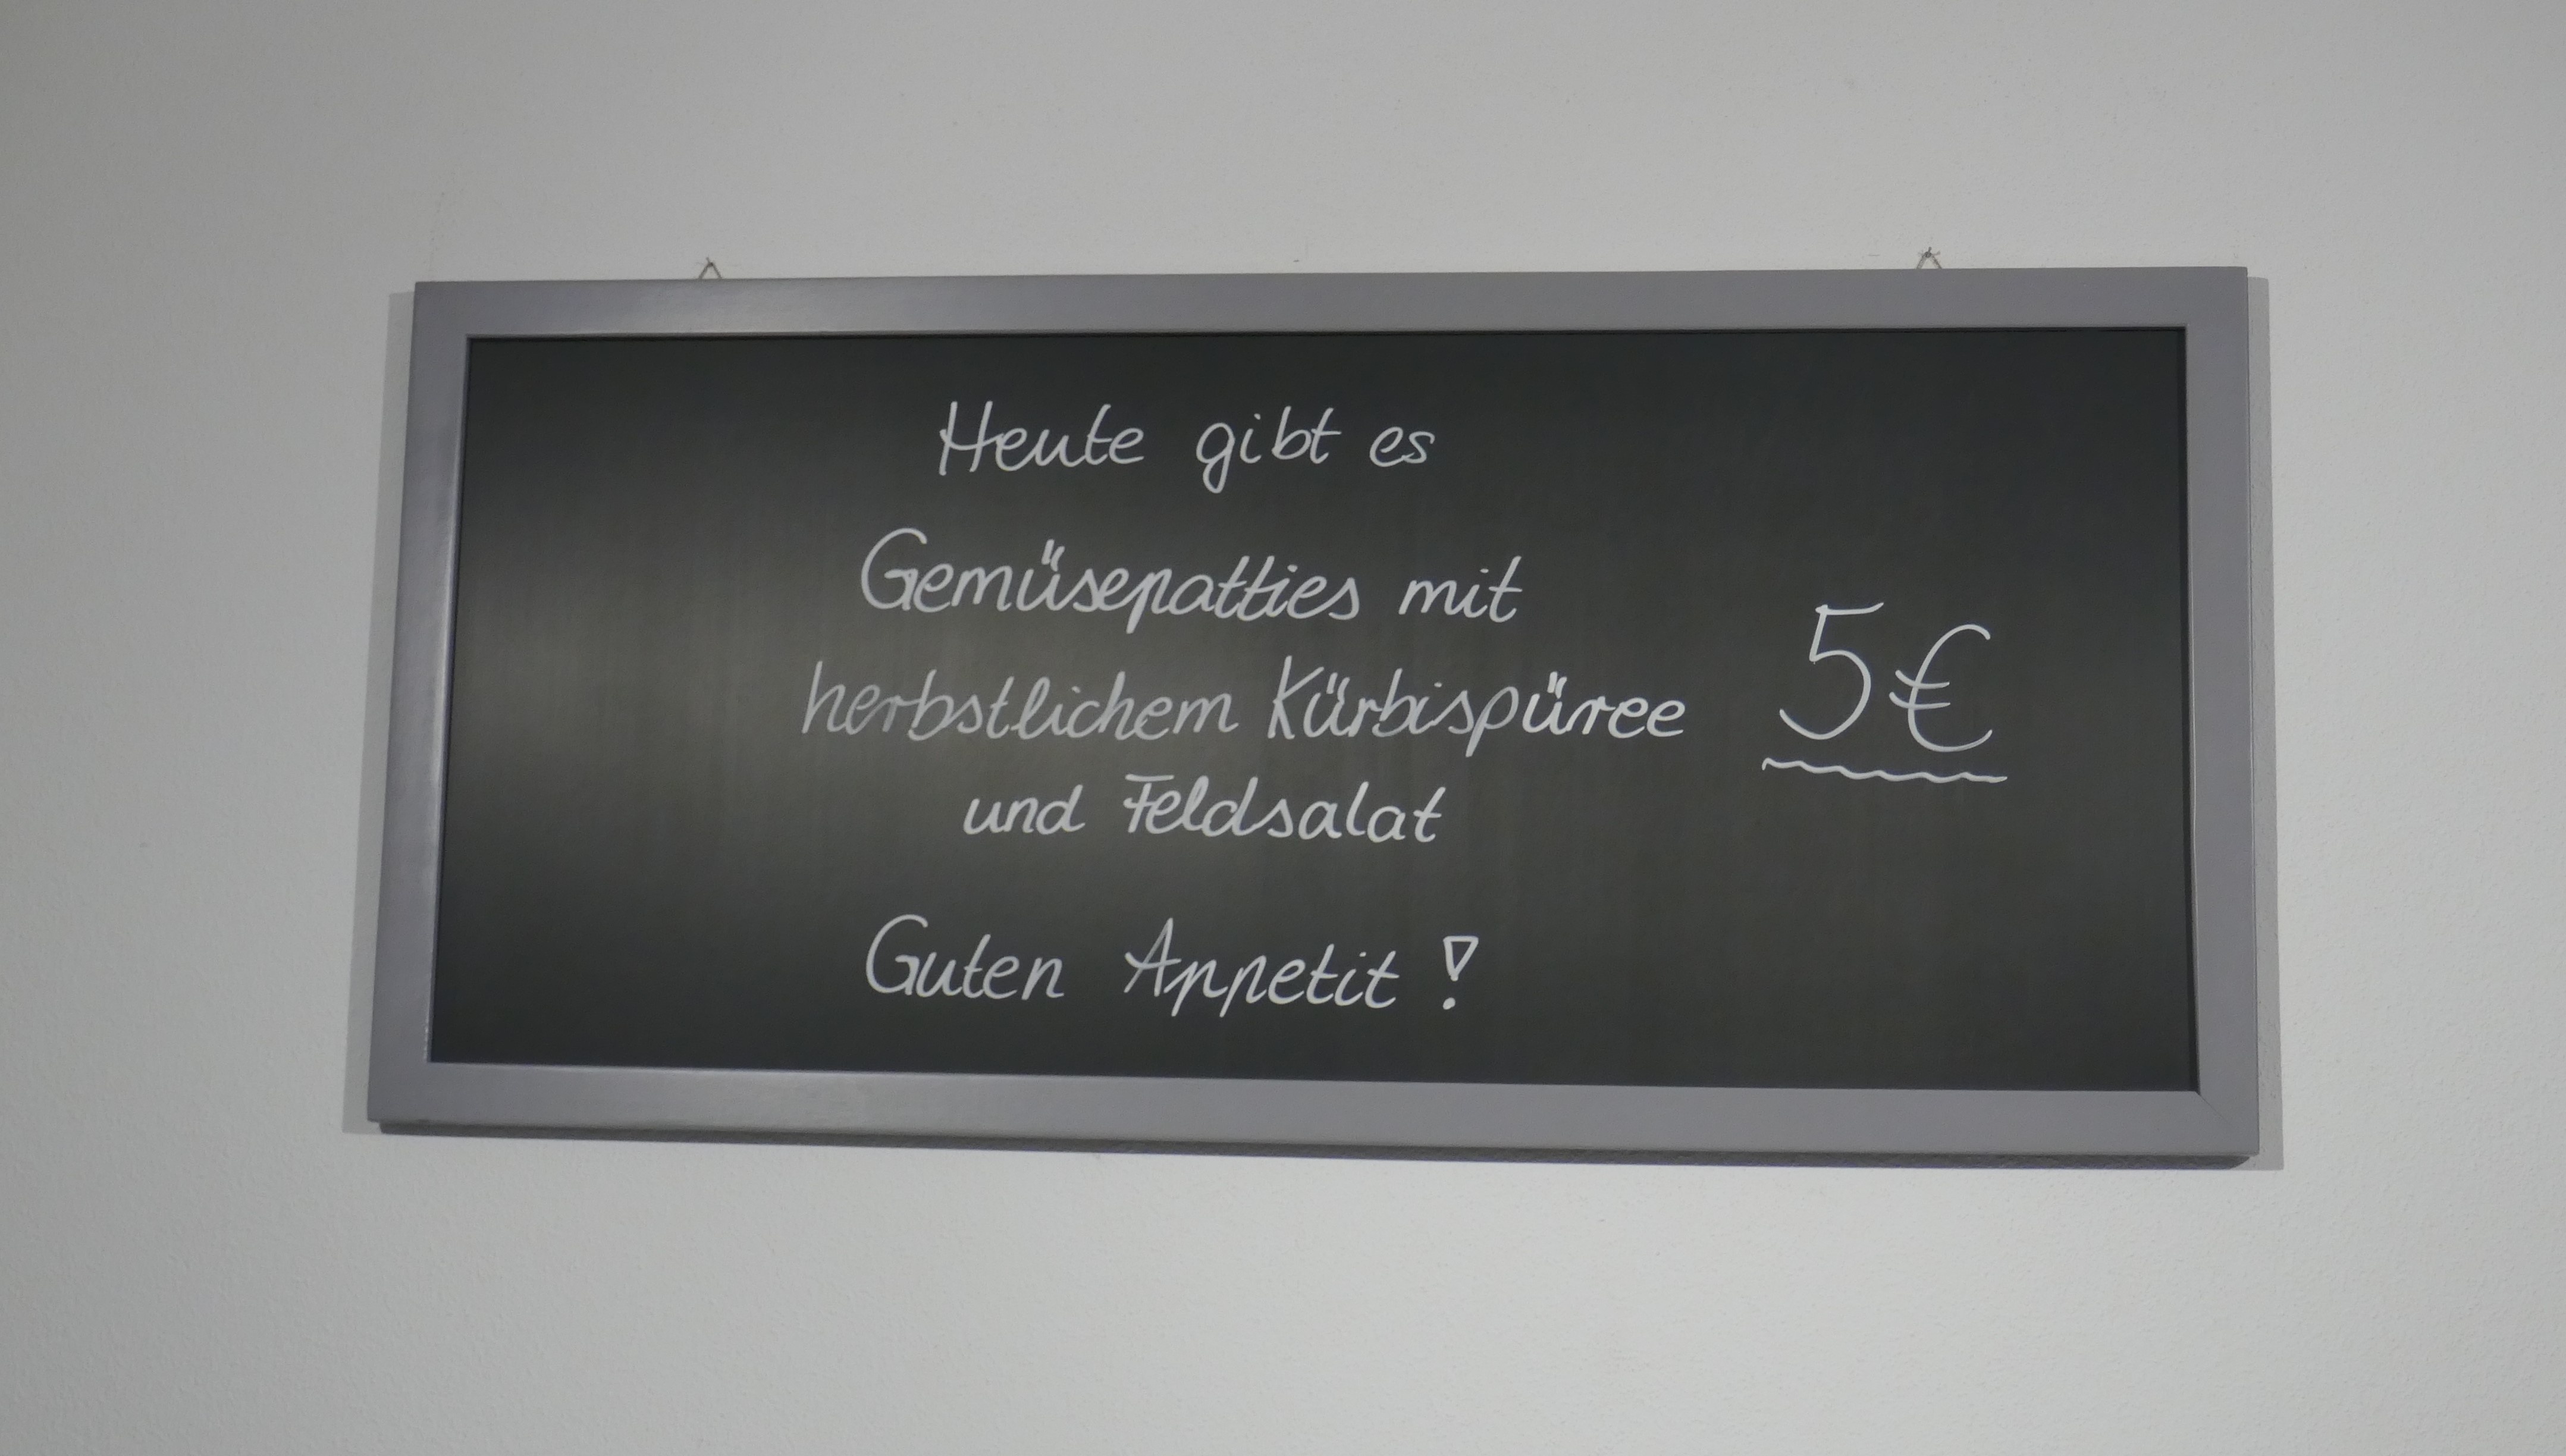 Heute gibt es
Gemüsepatties mit
herbstlichem Kürbispüree
und Feldsalat
5€
Guten Appetit!